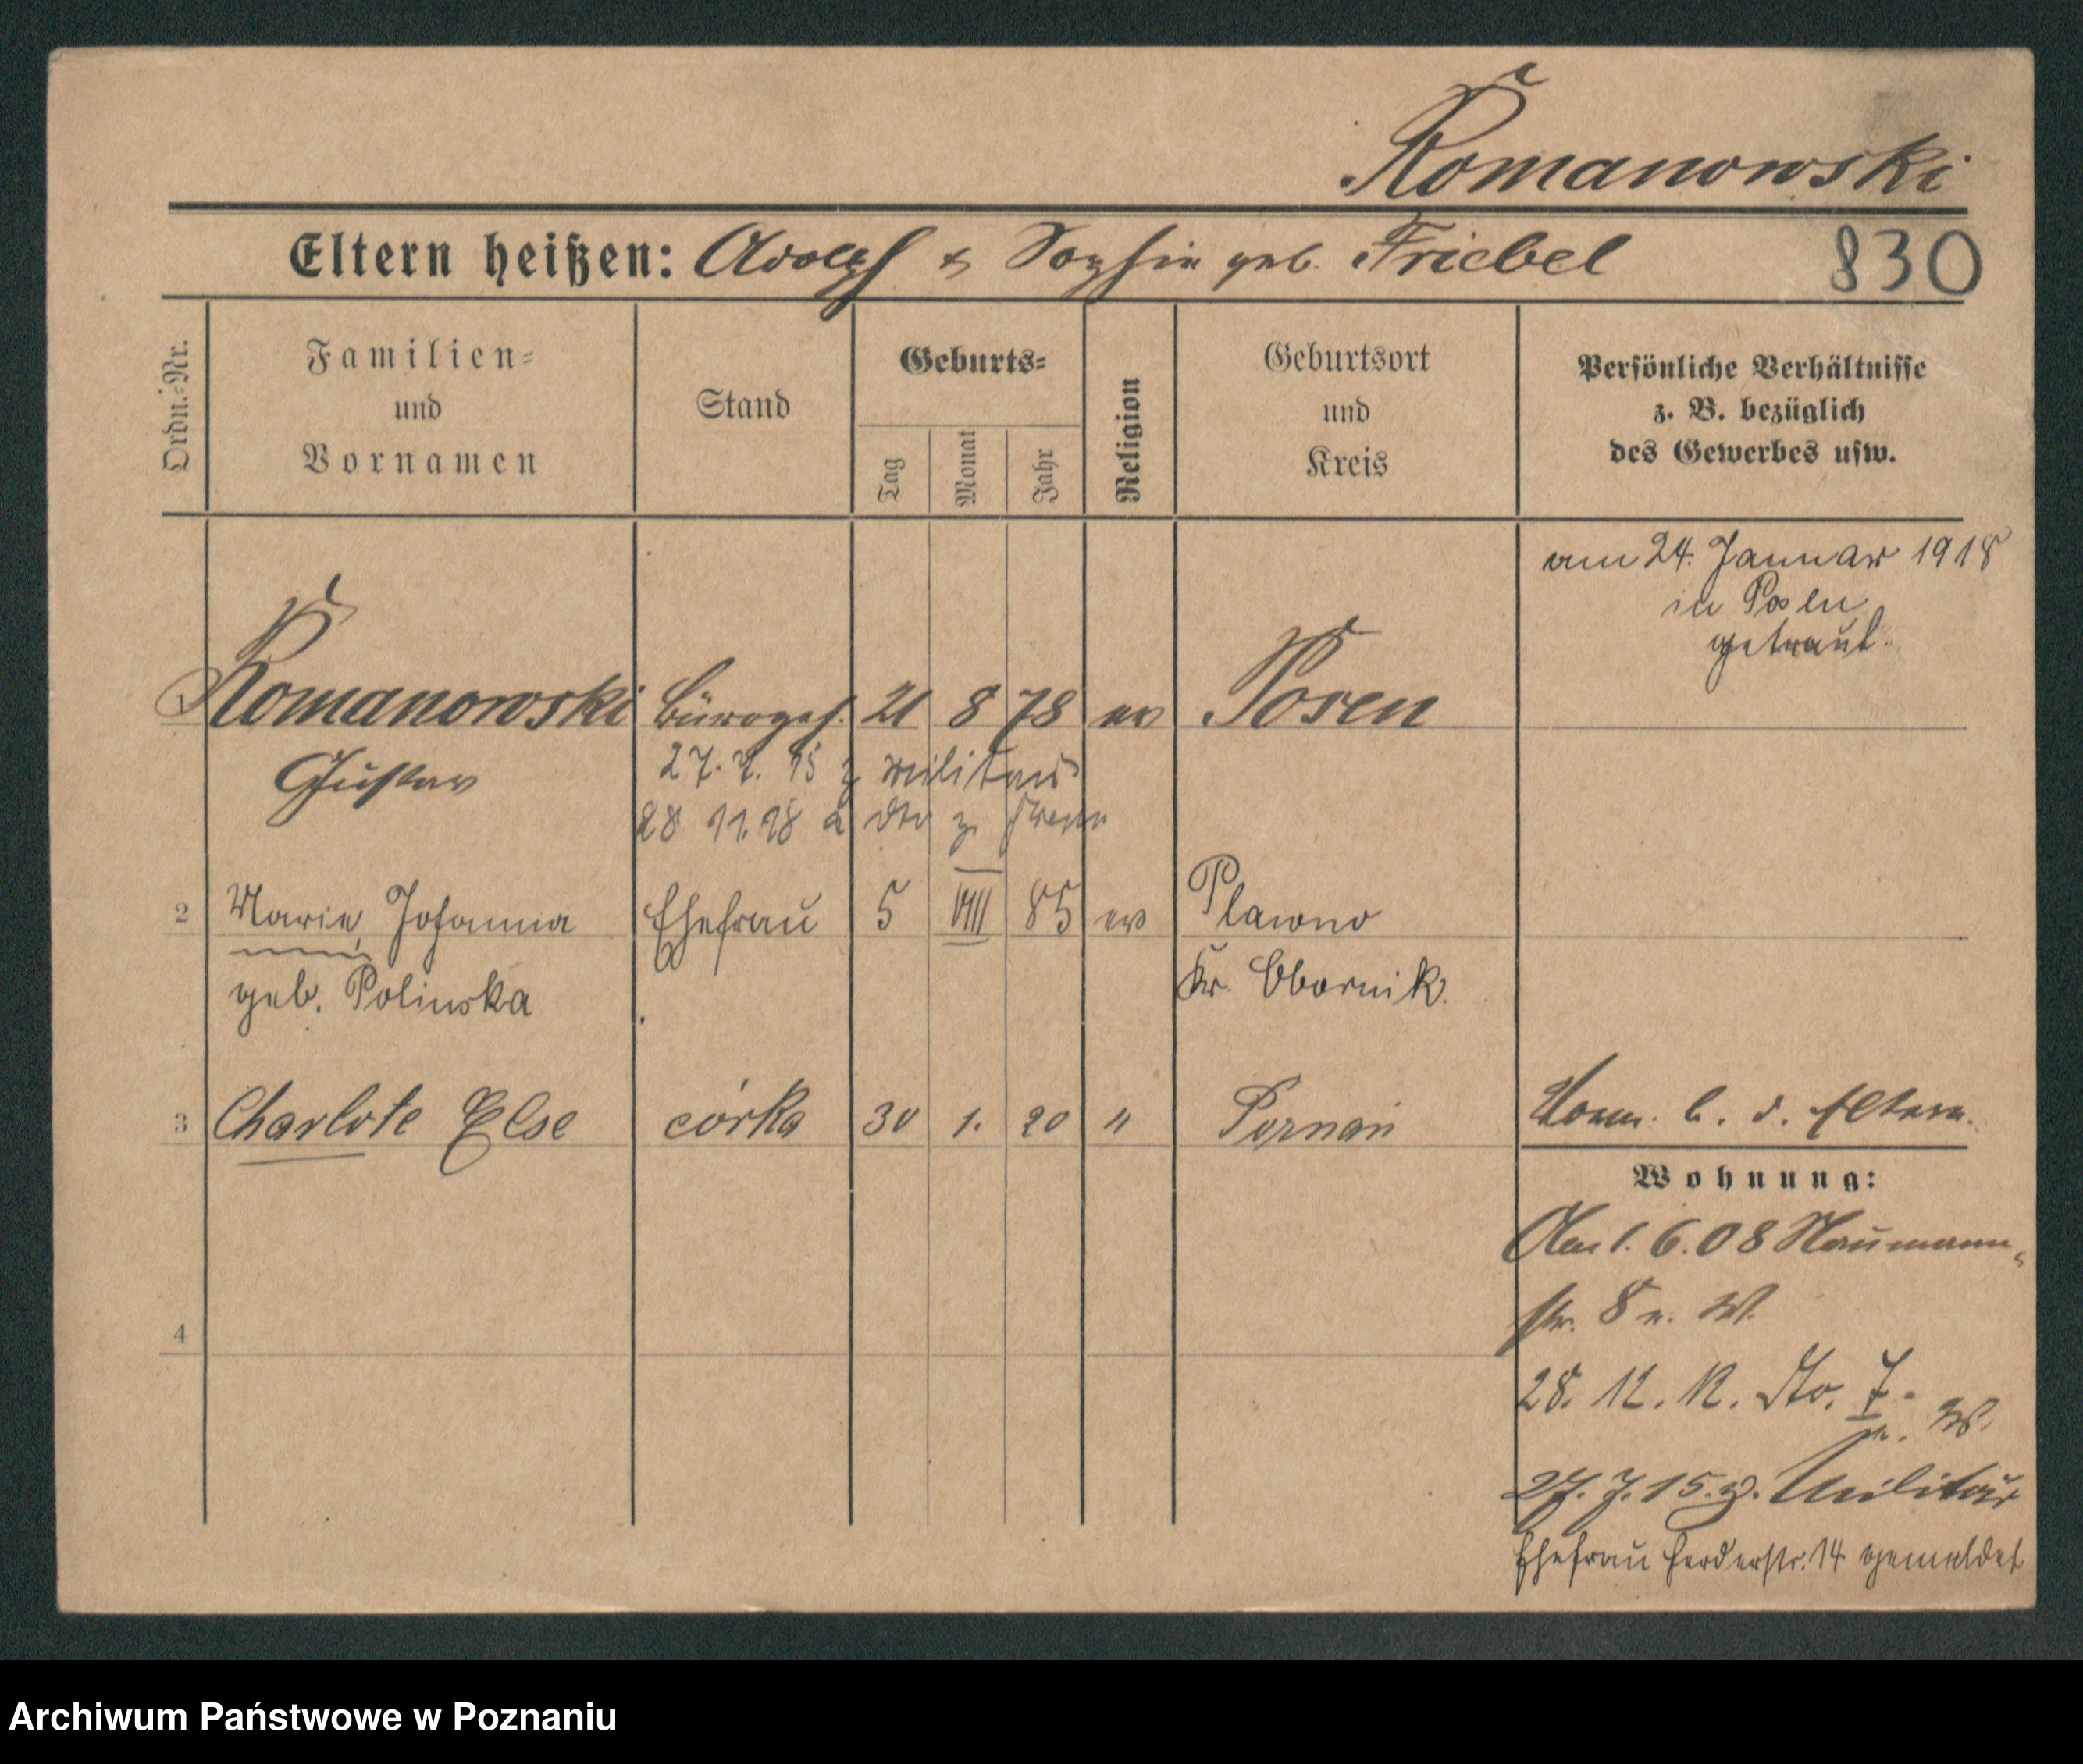 Romanowski
Eltern heißen: Adolf & Sophie geb. Friebel 830
Ordn.-Nr.
Familien-
und
Vornamen
Stand
Geburts-
Tag
Monat
Jahr
Religion
Geburtsort
und
Kreis
Persönliche Verhältnisse
z. B. bezüglich
des Gewerbes usw.
am 24. Januar 1918
in Posen
getraut.
1 Romanowski Bürogeh. 21 8 78 ev Posen
Gustav
27. 7. 15 z Militär
28 11. 18 a dto z
2 Marie, Johanna Ehefrau 5 VIII 85 ev Plawno
geb. Polinska Kr. Obornik.
3 Charlote Else córka 30 1. 20 " Poznań b. d. Eltern.
Wohnung:
1. 6. 08 Naumann-
str. 8 n. W.
4
28. 12. 12. dto. 7.
n. W.
27. 7. 15. z. Militär
Ehefrau Herderstr. 14 gemeldet
Archiwum Państwowe w Poznaniu